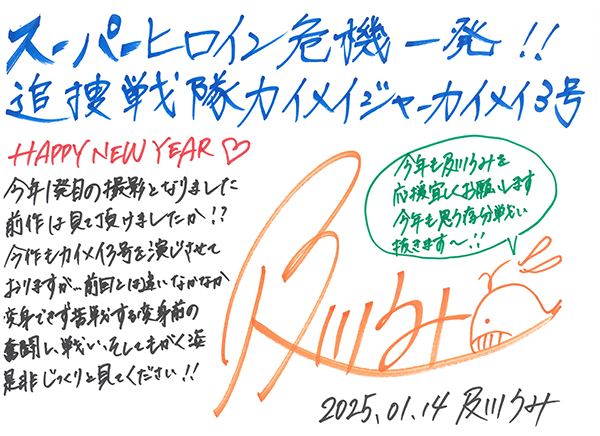 スーパーヒロイン危機一発!!
追捜戦隊カイメイジャーカイメイ3号
HAPPY NEW YEAR♡
今年1発目の撮影となりました
前作は見て頂けましたか!?
今作もカイメイ3号を演じさせて
おりますが…前回とは違いなかなか
変身できず苦戦する変身前の
奮闘し、戦い、そしてもがく姿
是非じっくりと見てください!!
今年も及川うみを
応援宜しくお願いします
今年も思う存分戦い
抜きます〜!!
及川うみ
2025.01.14 及川うみ